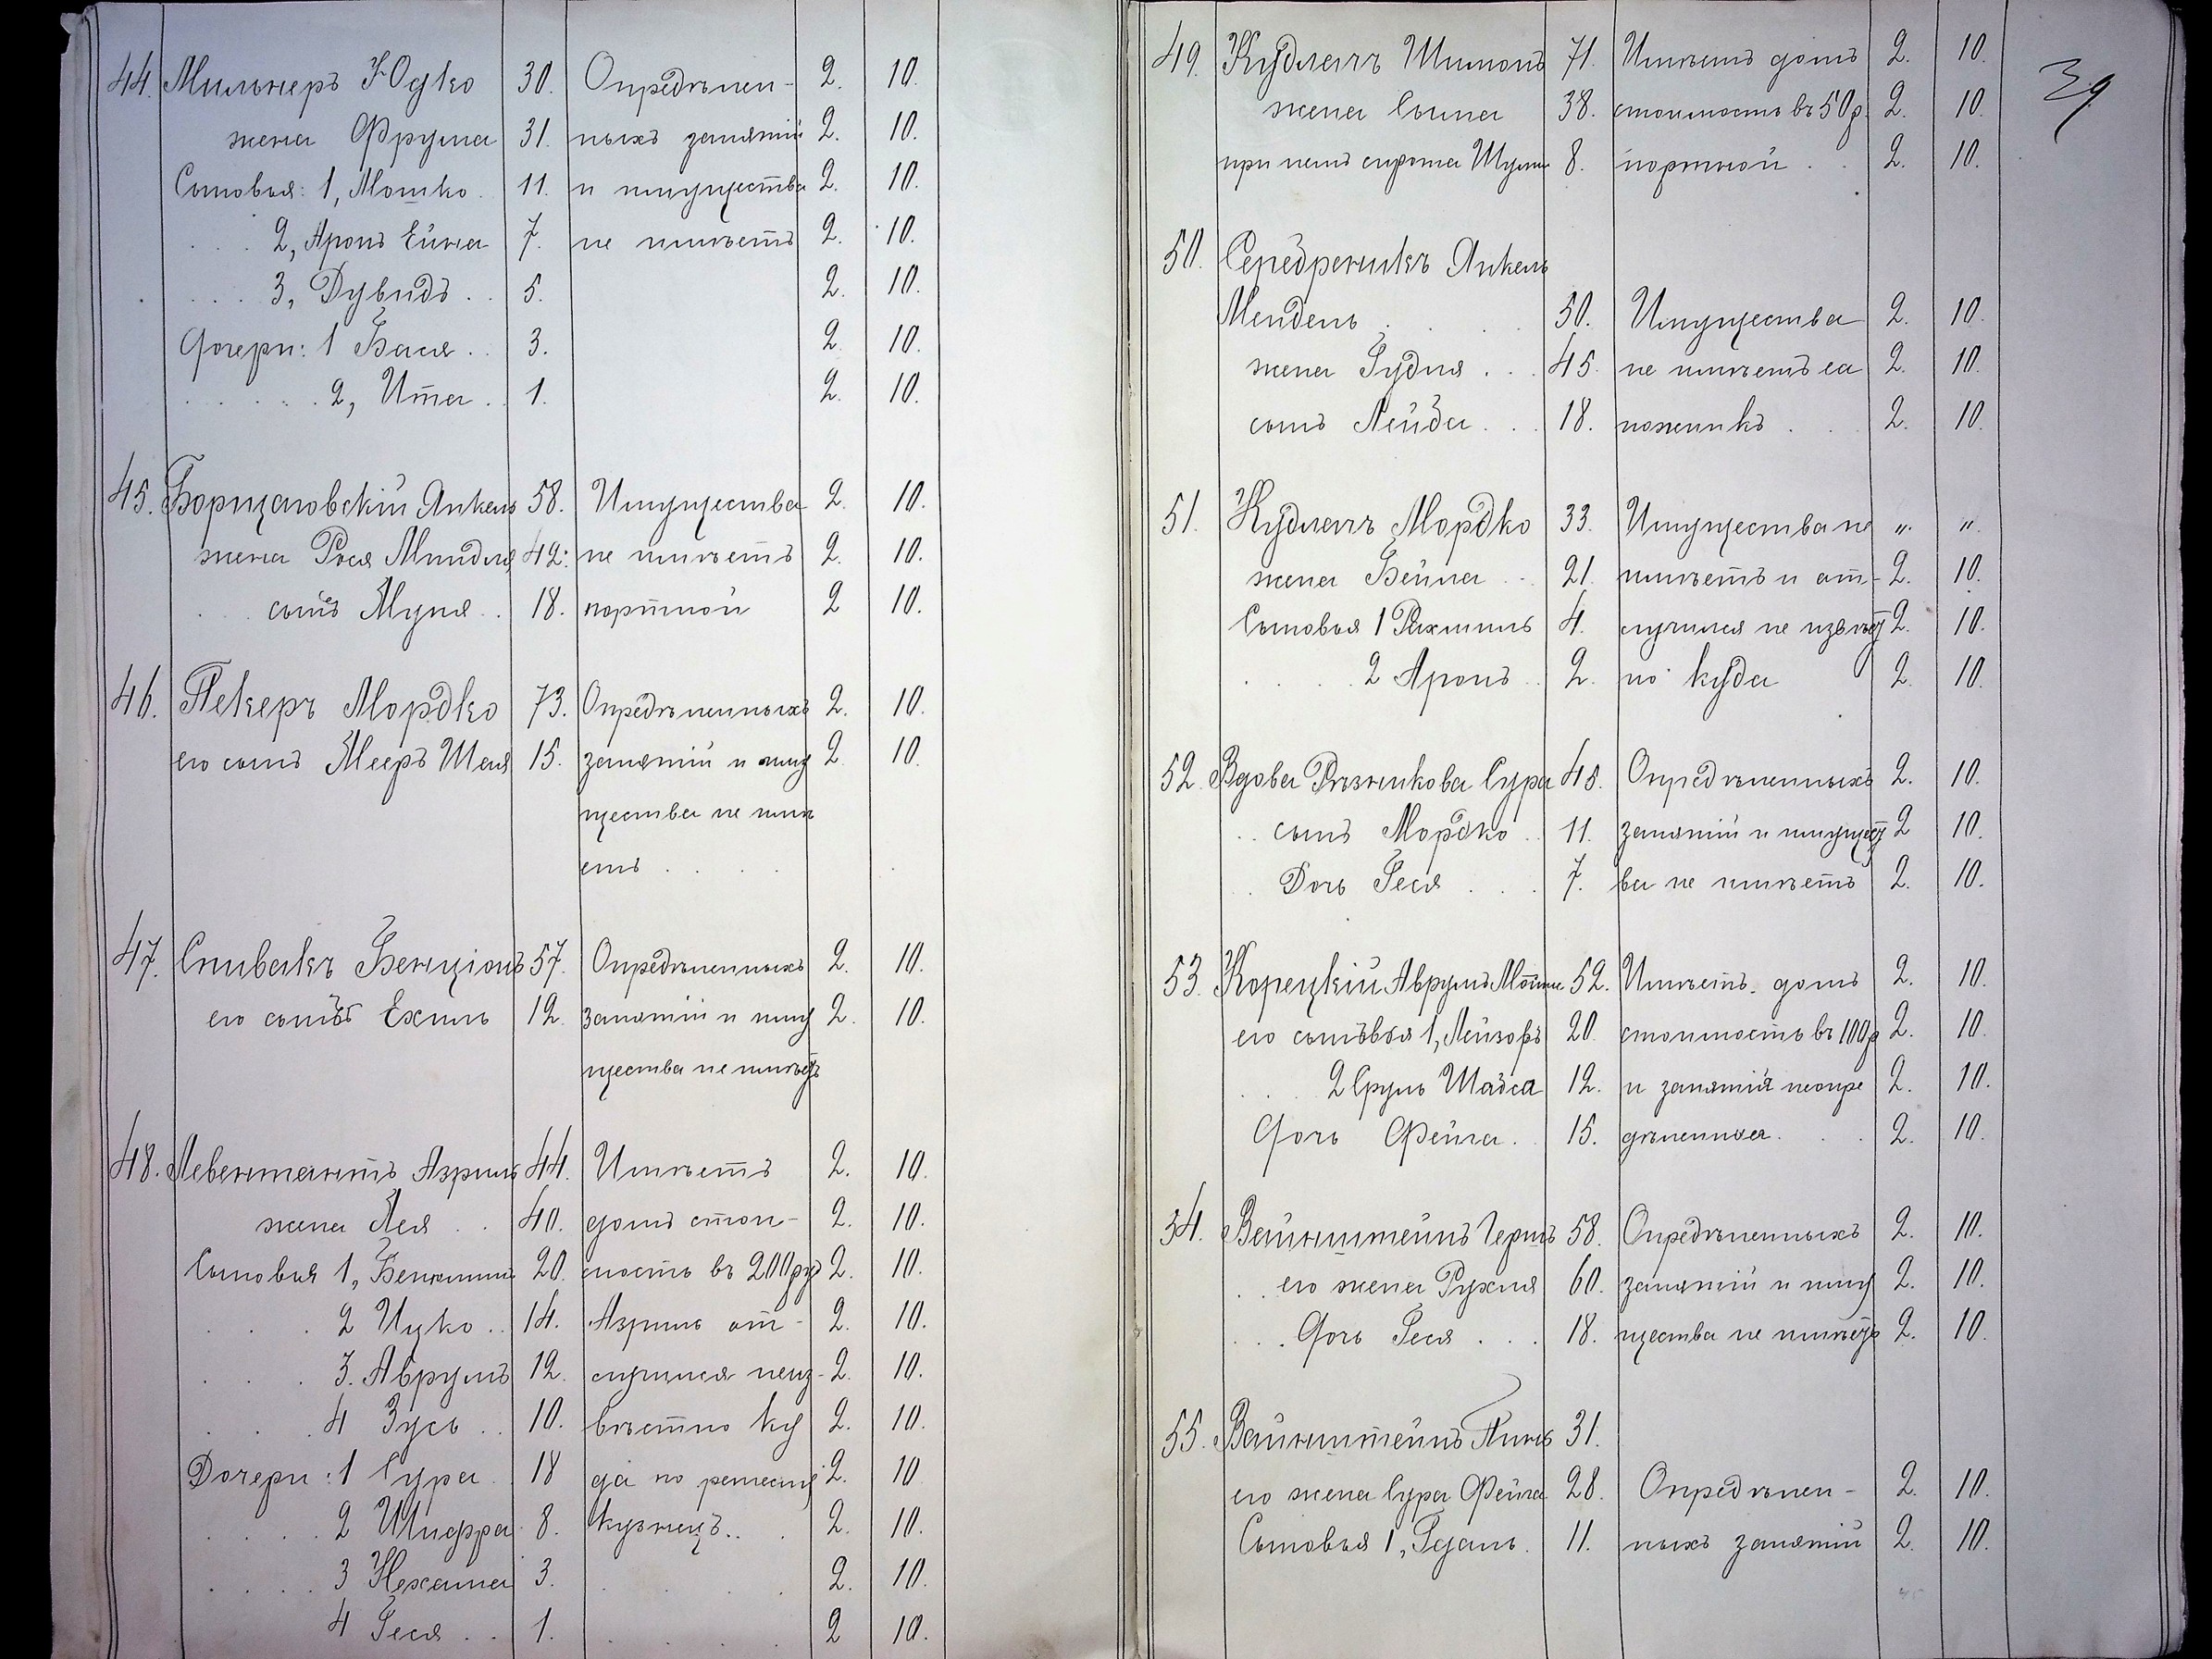 44. Мильнеръ Юдко 30. Опредѣлен- 2. 10.
жена Фрума 31. ныхъ занятій 2. 10.
Сыновья: 1, Мошко. 11. и имущества 2. 10.
2, Аронъ Ейна 7. не имѣетъ 2. 10.
3, Дувидъ 5. 2. 10.
Дочери: 1 Бася 3. 2. 10.
2, Ита 1. 2. 10.
45. Борщаговскій Янкель 58. Имущества 2. 10.
жена Рося Миндля 42. не имѣетъ 2. 10.
сынъ Муня 18. портной 2 10.
46. Пекеръ Мордко 73. Опредѣленныхъ 2. 10.
его сынъ Мееръ Шая 15. занятій и иму 2. 10.
щества не имѣ
етъ
47. Спивакъ Бенціонъ 57. Опредѣленныхъ 2. 10.
его сынъ Ехиль 12. занятій и иму 2. 10.
щества не имѣетъ
48. Левентантъ Азриль 44. Имѣетъ 2. 10.
жена Лея 40. домъ стои- 2. 10.
Сыновья 1, Беньминъ 20. мость въ 200 ру 2. 10.
2 Ицко 14. Азриль от- 2. 10.
3. Аврумъ 12. лучился неиз- 2. 10.
4 Зусь 10. вѣстно ку 2. 10.
Дочери: 1 Сура 18 да по ремеслу 2. 10
2 Шифра 8. кузнецъ. 2. 10.
3 Нехама 3. 2. 10.
4 Геся 1. 2 10.
39
49. Кудлачъ Шимонъ 71. Имѣетъ домъ 2. 10.
жена Сима 38. стоимость въ 50 р. 2. 10.
при немъ сирота 8. портной 2. 10.
50. Середреникъ Янкель
Мендель 50. Имущества 2. 10.
жена Гудля 45. не имѣетъ са 2. 10.
сынъ Лейба 18. пожникъ 2. 10.
51. Кудлачъ Мордко 33. Имущества не " "
жена Бейла 21. имѣетъ и от- 2. 10.
Сыновья 1 Рахмиль 4. лучился не извѣст 2. 10.
2 Аронъ 2. но куда 2. 10.
52. Вдова Рѣзникова Сура 45. Опредѣленныхъ 2. 10.
сынъ Мордко 11. занятій и имущест 2 10.
Дочь Геся 7. ва не имѣетъ 2. 10.
53. Корецкій Аврумъ 52. Имѣетъ домъ 2. 10.
его сыновья 1, Лейзоръ 20. стоимость въ 100 р 2. 10.
2 Сруль Шабса 12. и занятія неопре 2. 10.
Дочь Фейга 15. дѣленная. 2. 10.
54. Вейнштейнъ Гершъ 58. Опредѣленныхъ 2. 10.
его жена Рухля 60. занятій и иму 2. 10.
Дочь Геся 18. щества не имѣетъ 2. 10.
55. Вайнштейнъ Пинь 31.
его жена Сура Фейга 28. Опредѣлен- 2. 10.
Сыновья 1, Гдаль 11. ныхъ занятій 2. 10.